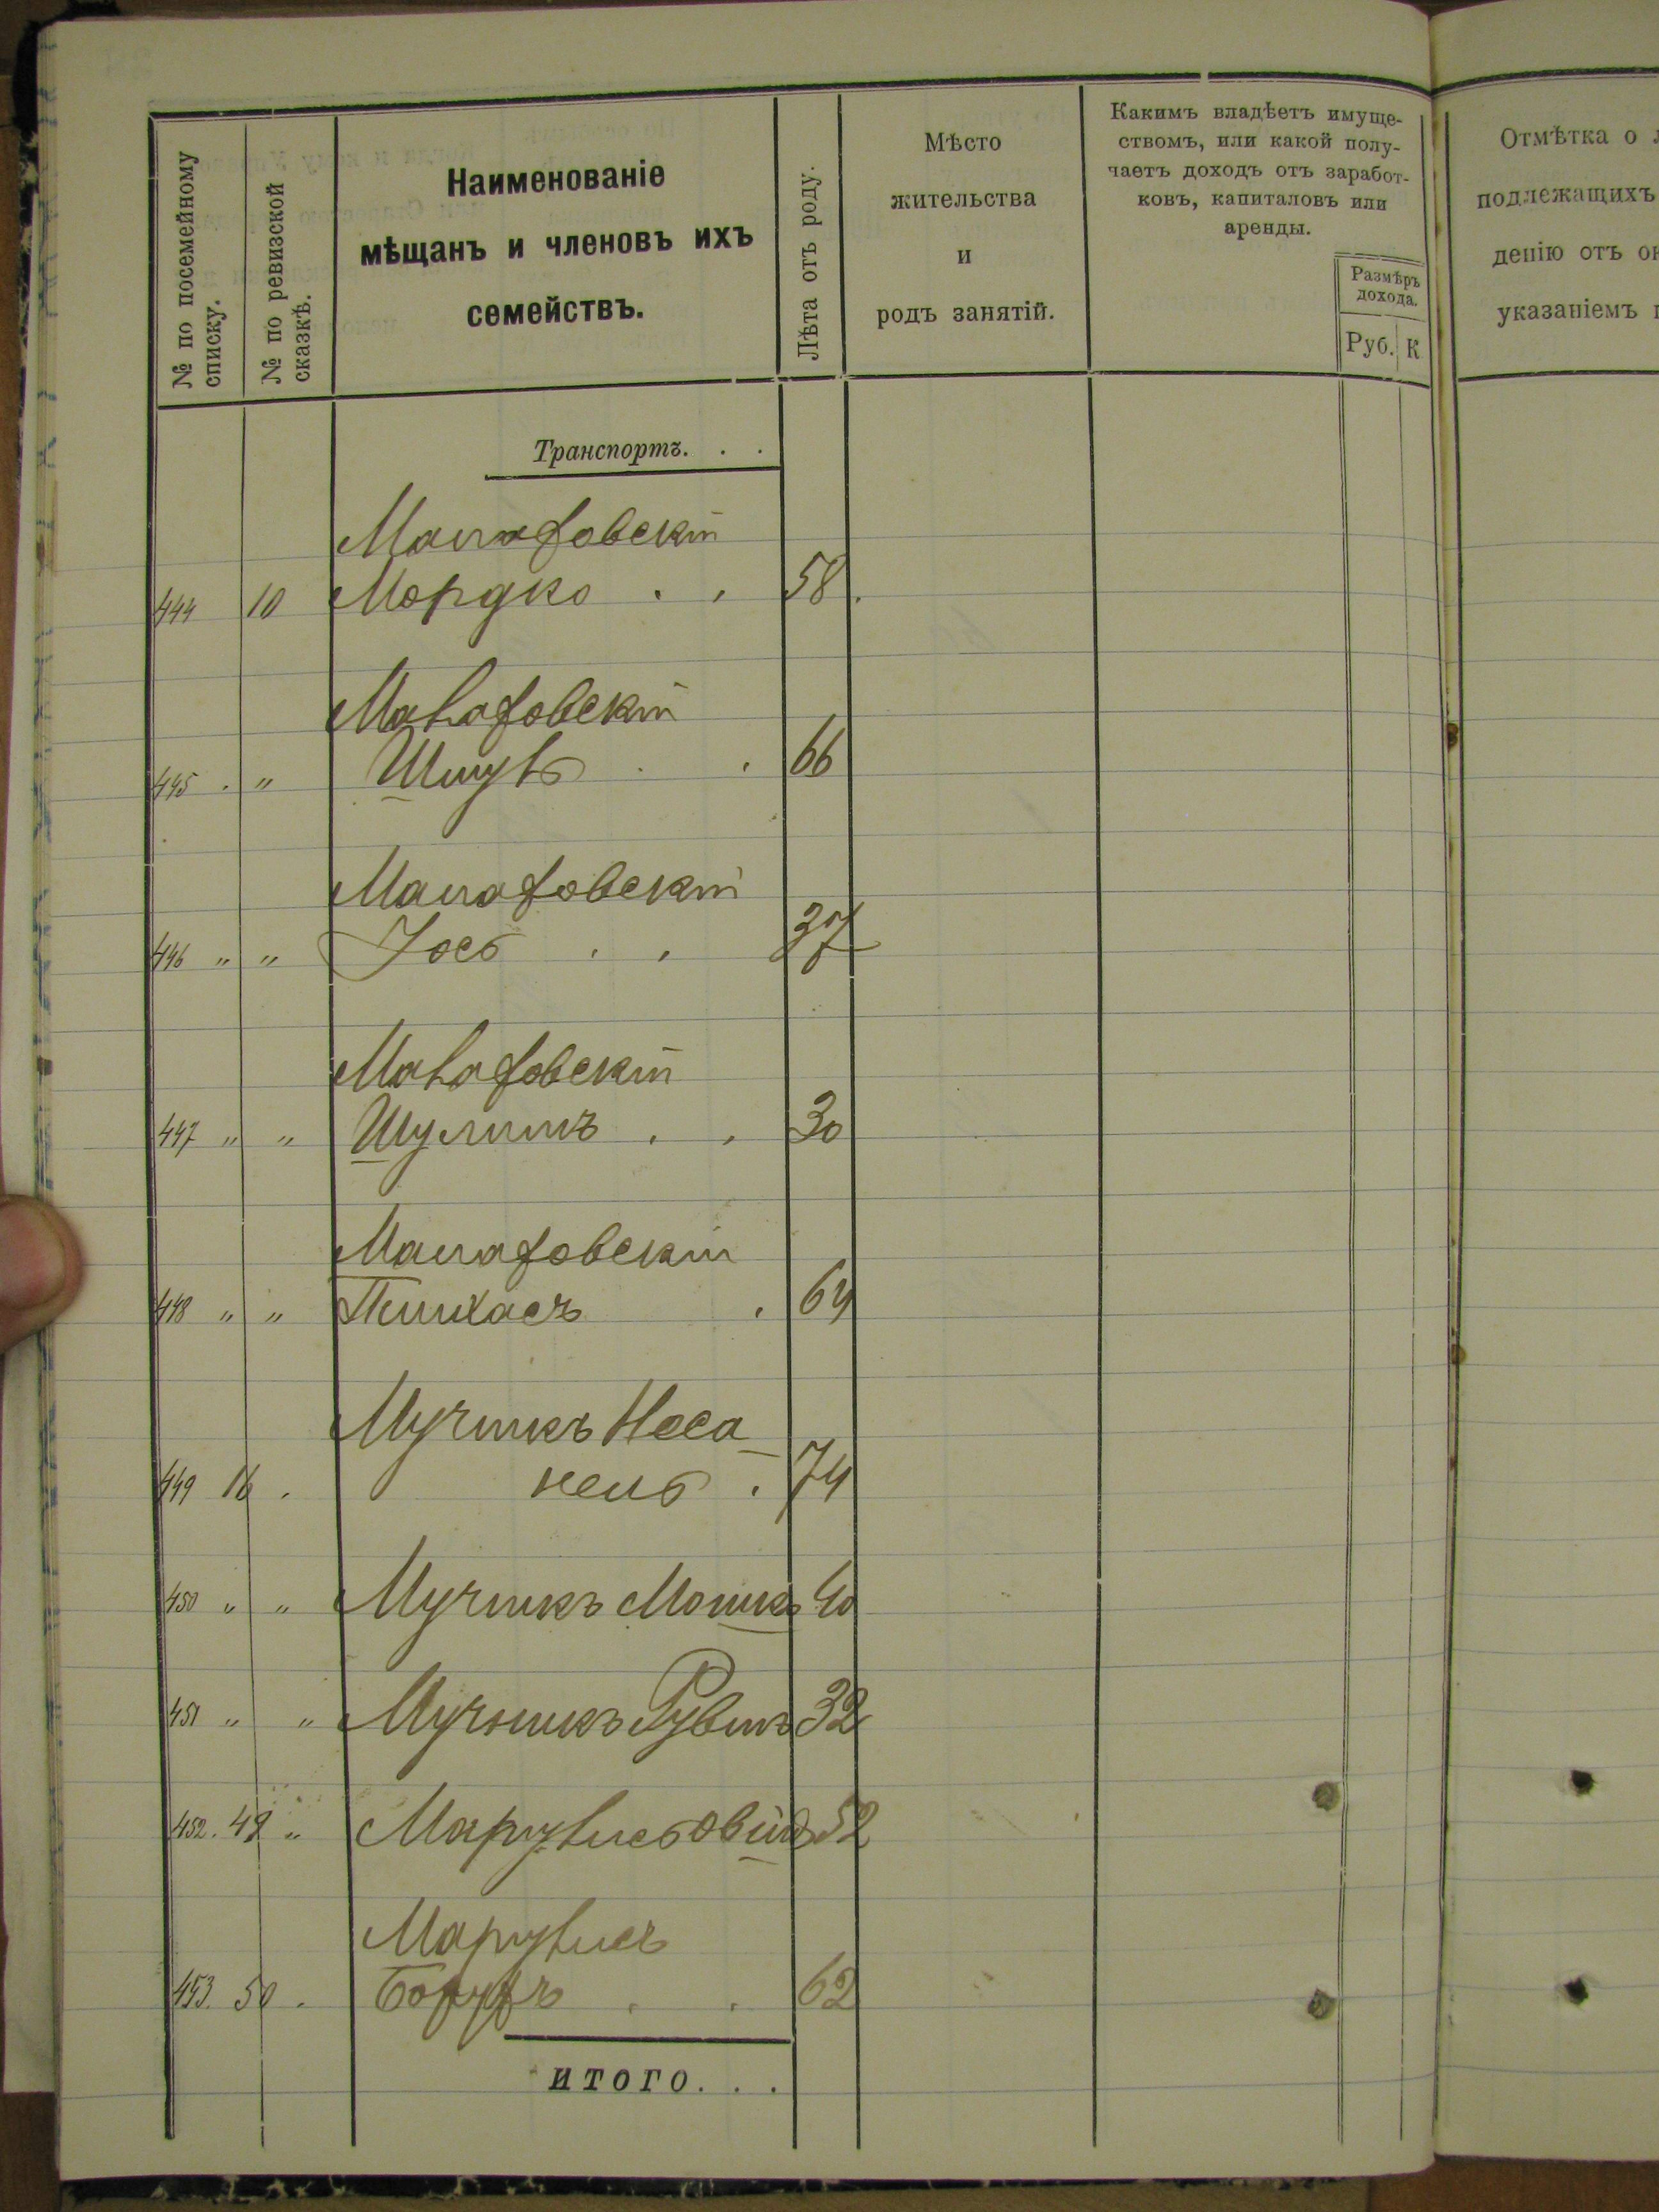 № по посемейному списку.
№ по ревизской сказкѣ.
Наименованіе
мѣщанъ и членовъ ихъ
семействъ.
Лѣта отъ роду.
Мѣсто
жительства
и
родъ занятій.
Какимъ владѣетъ имуще-
ствомъ, или какой полу-
чаетъ доходъ отъ заработ-
ковъ, капиталовъ или
аренды.
Размѣръ
дохода.
Руб. К
Отмѣтка о
подлежащихъ
денію отъ
указаніемъ
Транспортъ. . .
Малаховскій
444 10 Мордко . . 58.
Малаховскій
445 . " Шмуль . . 66
Малаховскій
446 " " Іось . . 37
Малаховскій
447 " " Шулимъ . . 30
Малаховскій
448 " " Пинхасъ . 64
Мучникъ Неса
449 16 . нель . 74
450 " " Мучникъ Мошко 40
451 " " Мучникъ Рувинъ 32
452. 49 " 52
453. 50 . Борухъ . . 62
ИТОГО. . .